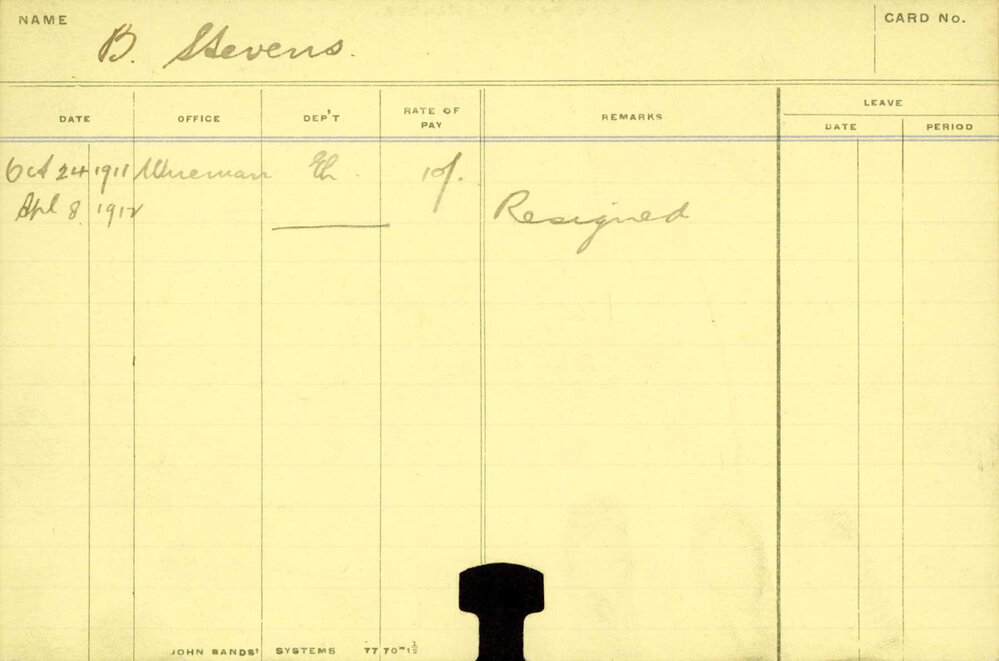 NAME B. Stevens.
CARD No.
DATE OFFICE DEP'T RATE OF PAY REMARKS LEAVE
DATE PERIOD
Oct 24 1911 Wireman 10/.
Apl 8. 1912 Resigned
JOHN SANDS' SYSTEMS 7770